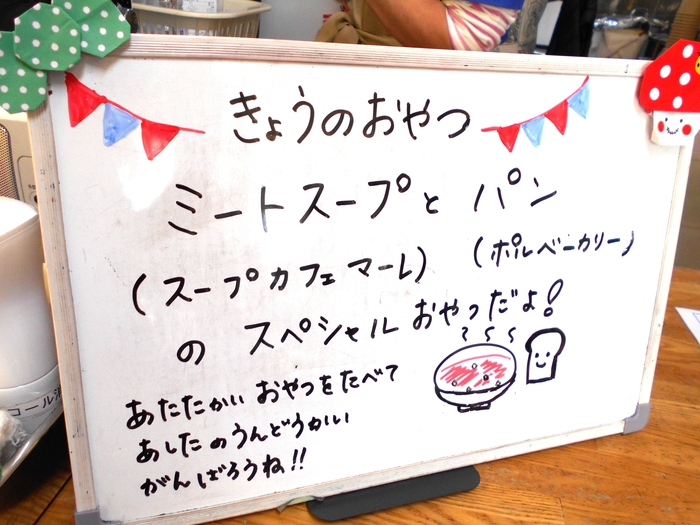 きょうのおやつ
ミートスープと パン
(スープカフェマール) (ポルベーカリー)
の スペシャルおやつだよ!
あたたかい おやつをたべて
あしたのうんどうかい
がんばろうね!!
コール消